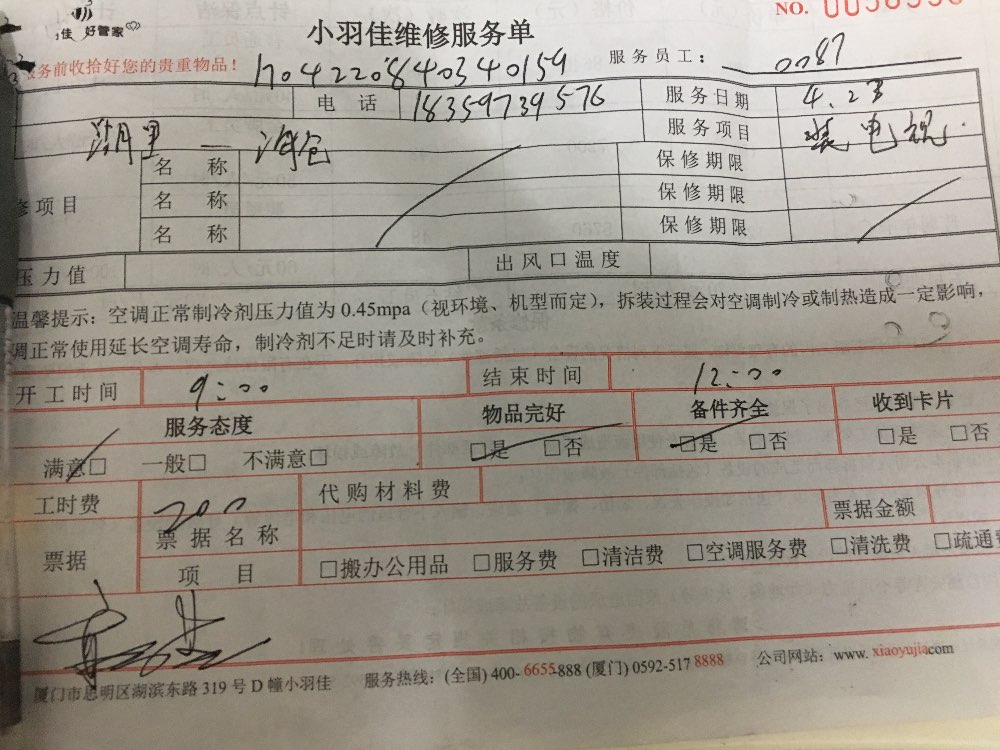 佳 好管家
NO.
小羽佳维修服务单
务前收拾好您的贵重物品！
17042208440340159
服务员工： 0087
电 话 18359739576 服务日期 4.23
湖里 — 海沧 服务项目 装电视
名 称 保修期限
修项目 名 称 保修期限
名 称 保修期限
压力值 出风口温度
温馨提示：空调正常制冷剂压力值为 0.45mpa（视环境、机型而定），拆装过程会对空调制冷或制热造成一定影响，
调正常使用延长空调寿命，制冷剂不足时请及时补充。
开工时间 9:00 结束时间 12:00
服务态度 物品完好 备件齐全 收到卡片
满意□ 一般□ 不满意□ □是 □否 □是 □否 □是 □否
工时费 200 代购材料费
票据 票据名称 票据金额
项 目 □搬办公用品 □服务费 □清洁费 □空调服务费 □清洗费 □疏通费
厦门市思明区湖滨东路 319 号 D 幢小羽佳 服务热线：(全国) 400-6655-888 (厦门) 0592-517 8888 公司网站：www. xiaoyujia.com